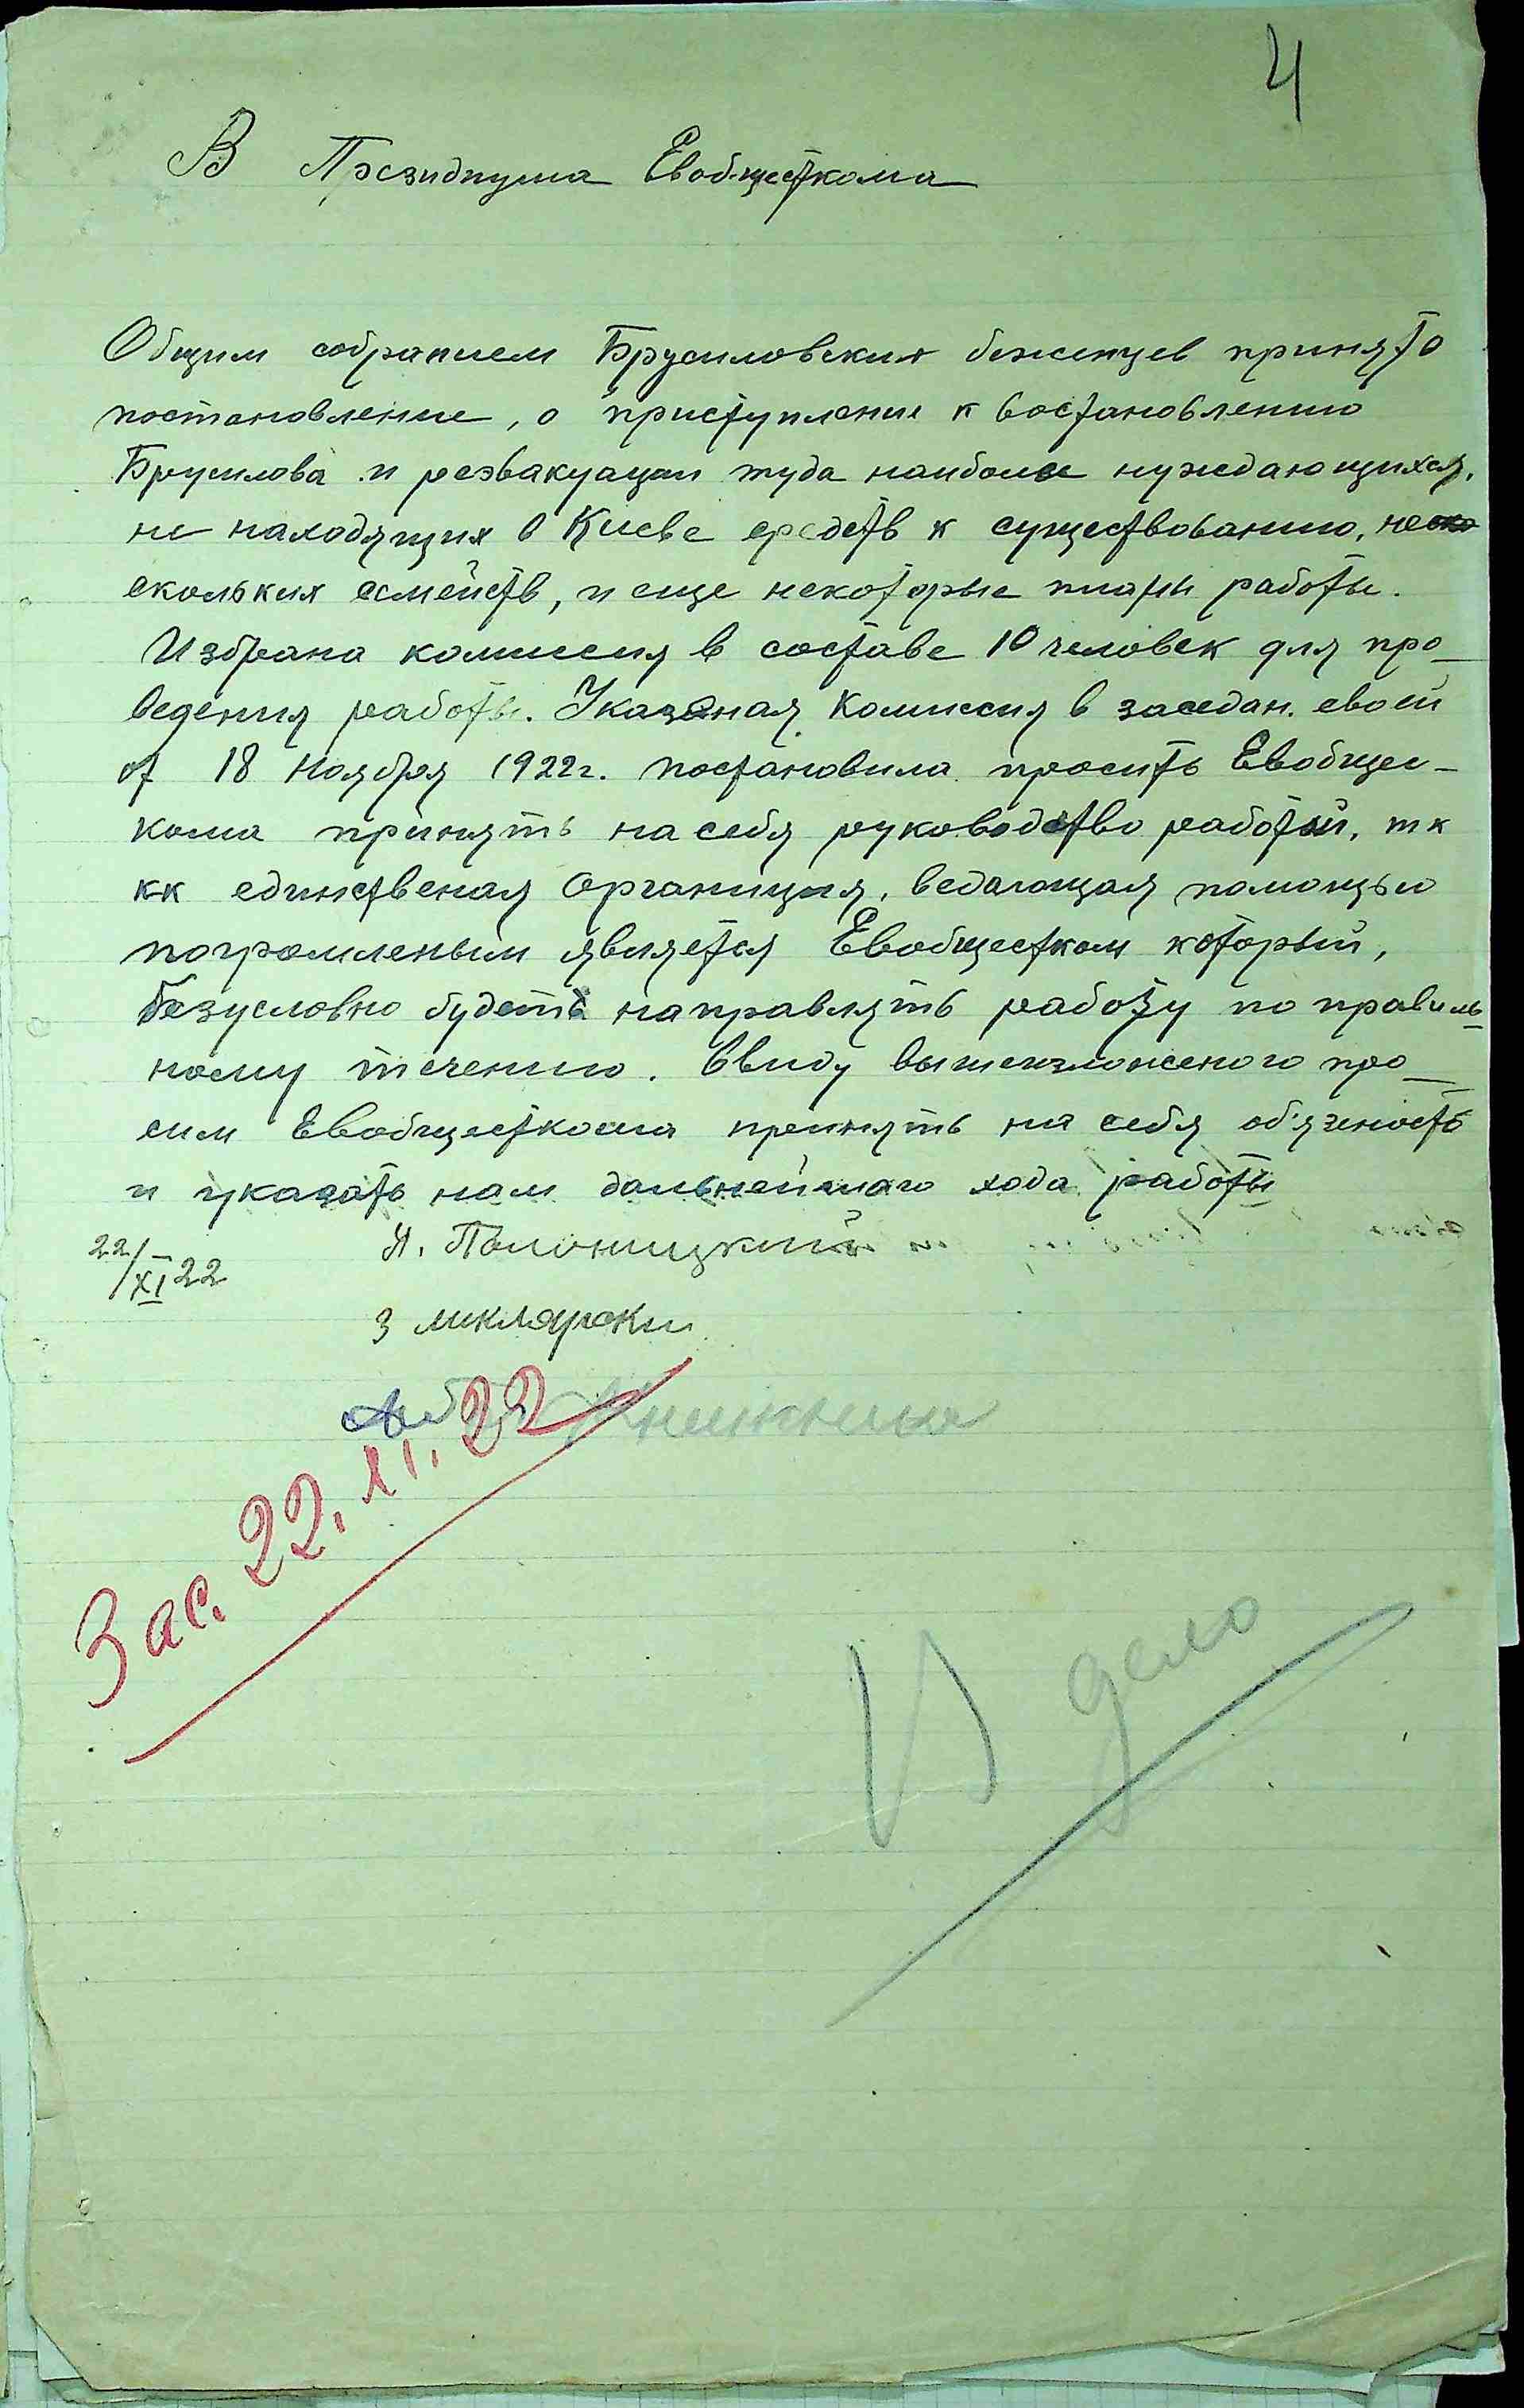 4
В Президиума Евобщесткома
Общим собранием Брусиловских беженцев принято
постановление, о приступлении к востановлению
Брусилова и реэвакуации туда наиболее нуждающихся,
не находящих в Киеве средств к существованию, не
скольких семейств, и еще некоторые планы работы.
Избрана комиссия в составе 10 человек для про-
ведения работы. Указаная Комиссия в заседан. своей
от 18 Ноября 1922г. постановила просить Евобщес-
кома принять на себя руководство работой, тк
кк единственая Органиция, ведающая помощью
погромленым является Евобщестком который,
безусловно будеть направлять работу по правиль-
ному течению. Ввиду вышеизложеного про-
сим Евобщесткома принять на себя об'язность
и указать нам дальнейшаго хода работы
22/XI 22
Я. Полоницкий
З Миклярски
Зас. 22. XI. 22
В дело